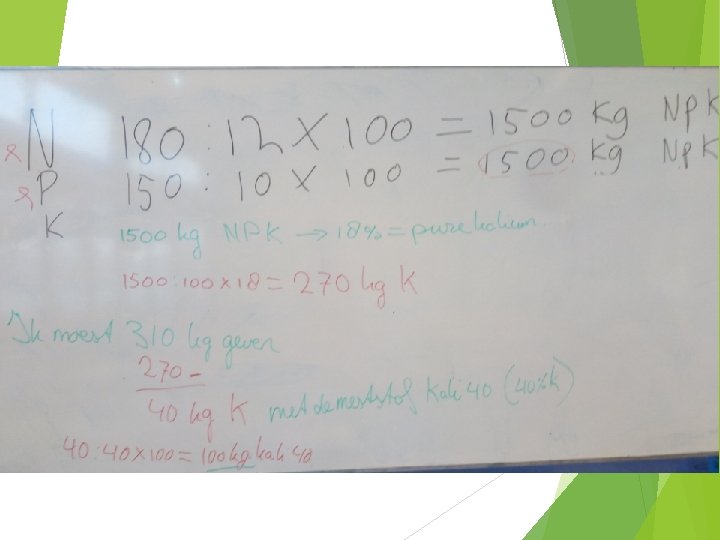 N 180 : 12 X 100 = 1500 kg NPK
P 150 : 10 X 100 = 1500 kg NPK
K
1500 kg NPK → 18% = pure kalium
1500:100 x 18 = 270 kg K
Ik moest 310 kg geven
270 -
40 kg K met de meststof Kali 40 (40% K)
40:40 x 100 = 100 kg kali 40